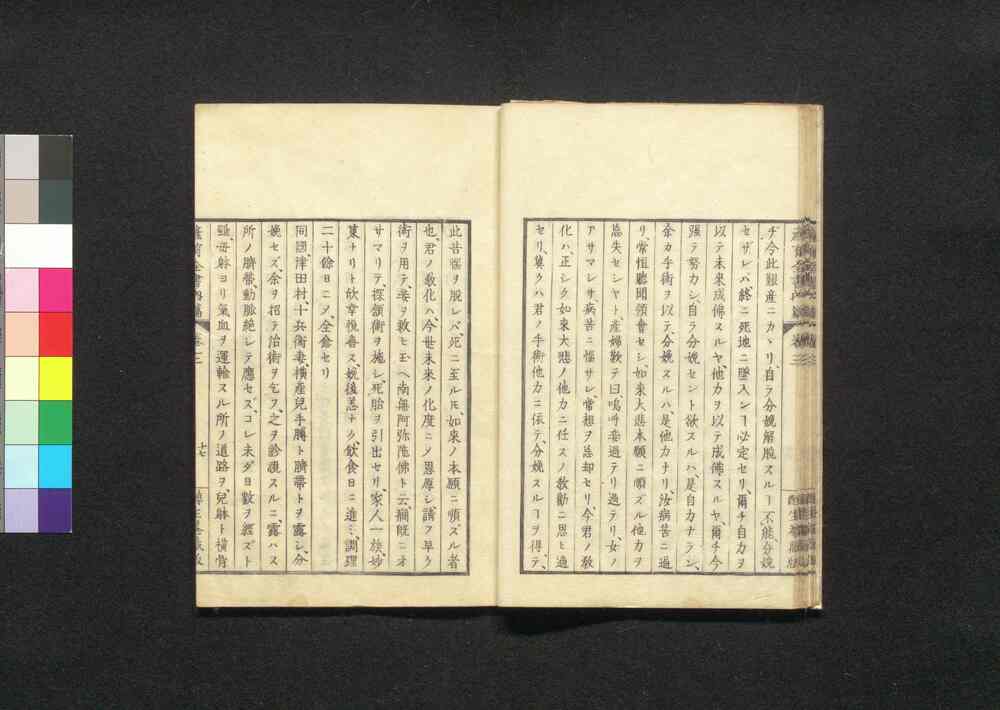 チ今此難産ニカヽリ、自ラ分娩解脱スルヿ不能、分娩
セザレバ、終ニ死地ニ墜入シヿ必定セリ、爾チ自力ヲ
以テ未來成佛スルヤ、他力ヲ以テ成佛スルヤ、爾チ今
強テ努力シ、自ラ分娩セント欲スルハ、是自力ナラン、
余カ手術ヲ以テ、分娩スルハ、是他力ナリ、汝病苦ニ迫
リ、常恒聽聞領會セシ、如來大悲本願ニ順ズル他力ヲ
忘失セシヤト、產婦歎テ曰嗚呼妾過テリ過テリ、女ノ
アサマレサ、病苦ニ惱サレ、常想ヲ忘却セリ、今君ノ教
化ハ正シク如來大悲ノ他力ニ任スノ教勸ニ思ヒ過
セリ、冀クハ君ノ手術他力ニ依テ、分娩スルヿヲ得テ、
此苦惱ヲ脱レバ、死ニ至ルモ、如來ノ本願ニ順ズル者
也、君ノ教化ハ、今世未來ノ化度ニメ恩厚シ、請フ早ク
術ヲ用テ、妾ヲ救ヒ玉ヘ、南無阿弥陀佛ト云、痛既ニオ
サマリテ、探頷術ヲ施シ、死胎ヲ引出セリ、家人一族、妙
東ナリト欣幸悅喜ス、娩後恙ナク、飲食日ニ進ミ、調理
二十餘日ニメ、全愈セリ
同國、津田村、十兵衛妻、橫產兒手腕ト臍帶トヲ露シ、分
娩セズ、余ヲ招テ治術ヲ乞フ、之ヲ診視スルニ、露ハス
所ノ臍帶、動脈絶シテ應セズ、コレ未ダ日數ヲ經ズト
雖、母躰ヨリ氣血ヲ運輸スル所ノ道路ヲ、兒躰ト橫骨
卷三
十七